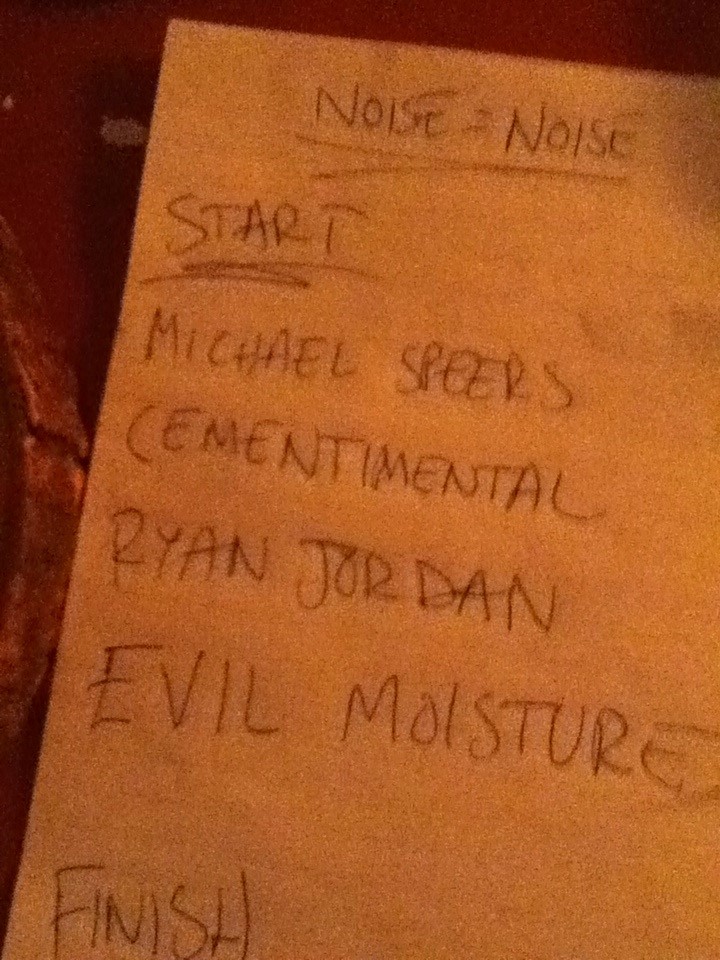 NOISE = NOISE
START
MICHAEL SPEERS
CEMENTIMENTAL
RYAN JORDAN
EVIL MOISTURE
FINISH